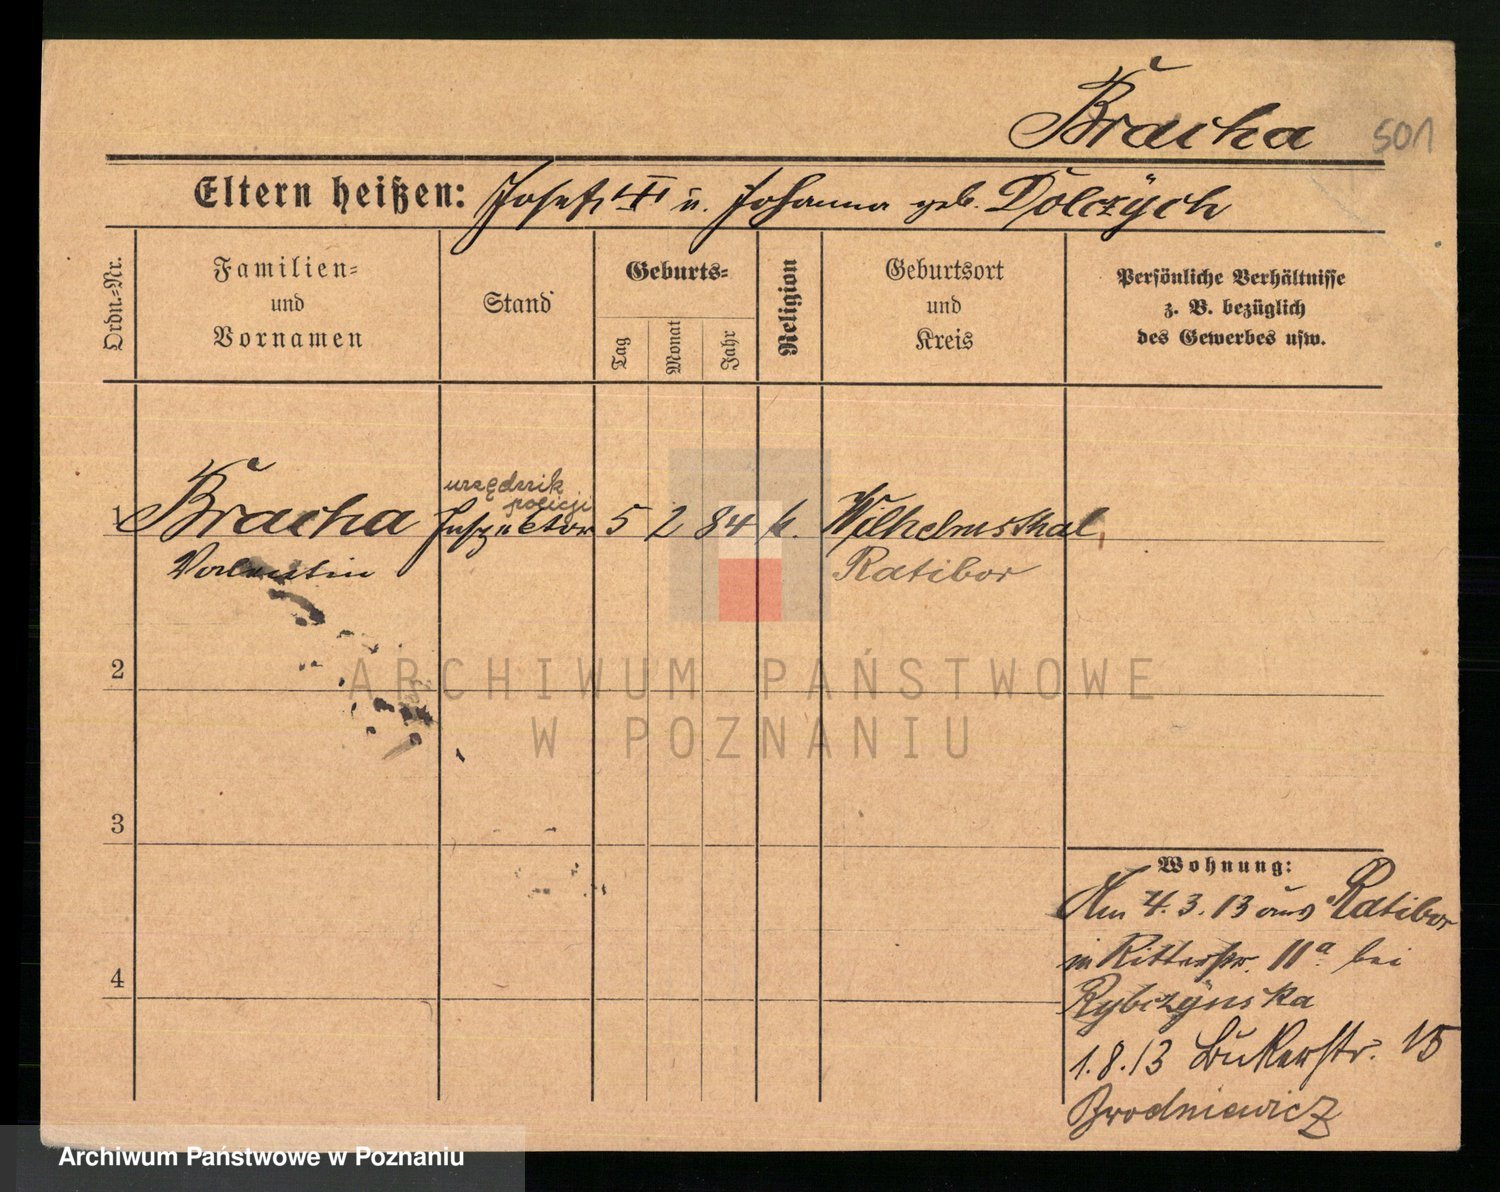 Bracha
501
Eltern heißen: Josef u. Johanna geb. Dolczych
Ordn.-Nr.
Familien-
und
Vornamen
Stand
Geburts-
Tag
Monat
Jahr
Religion
Geburtsort
und
Kreis
Persönliche Verhältnisse
z. B. bezüglich
des Gewerbes usw.
urzędnik
policji
1 Bracha Inspektor 5 2 84 k. Wilhelmsthal
Valentin Ratibor
2
3
4
Wohnung:
Am 4.3.13 aus Ratibor
in Ritterstr. 11a bei
Rybczynska
1.8.13 Bukerstr. 15
Brodniewicz
ARCHIWUM PAŃSTWOWE
W POZNANIU
Archiwum Państwowe w Poznaniu